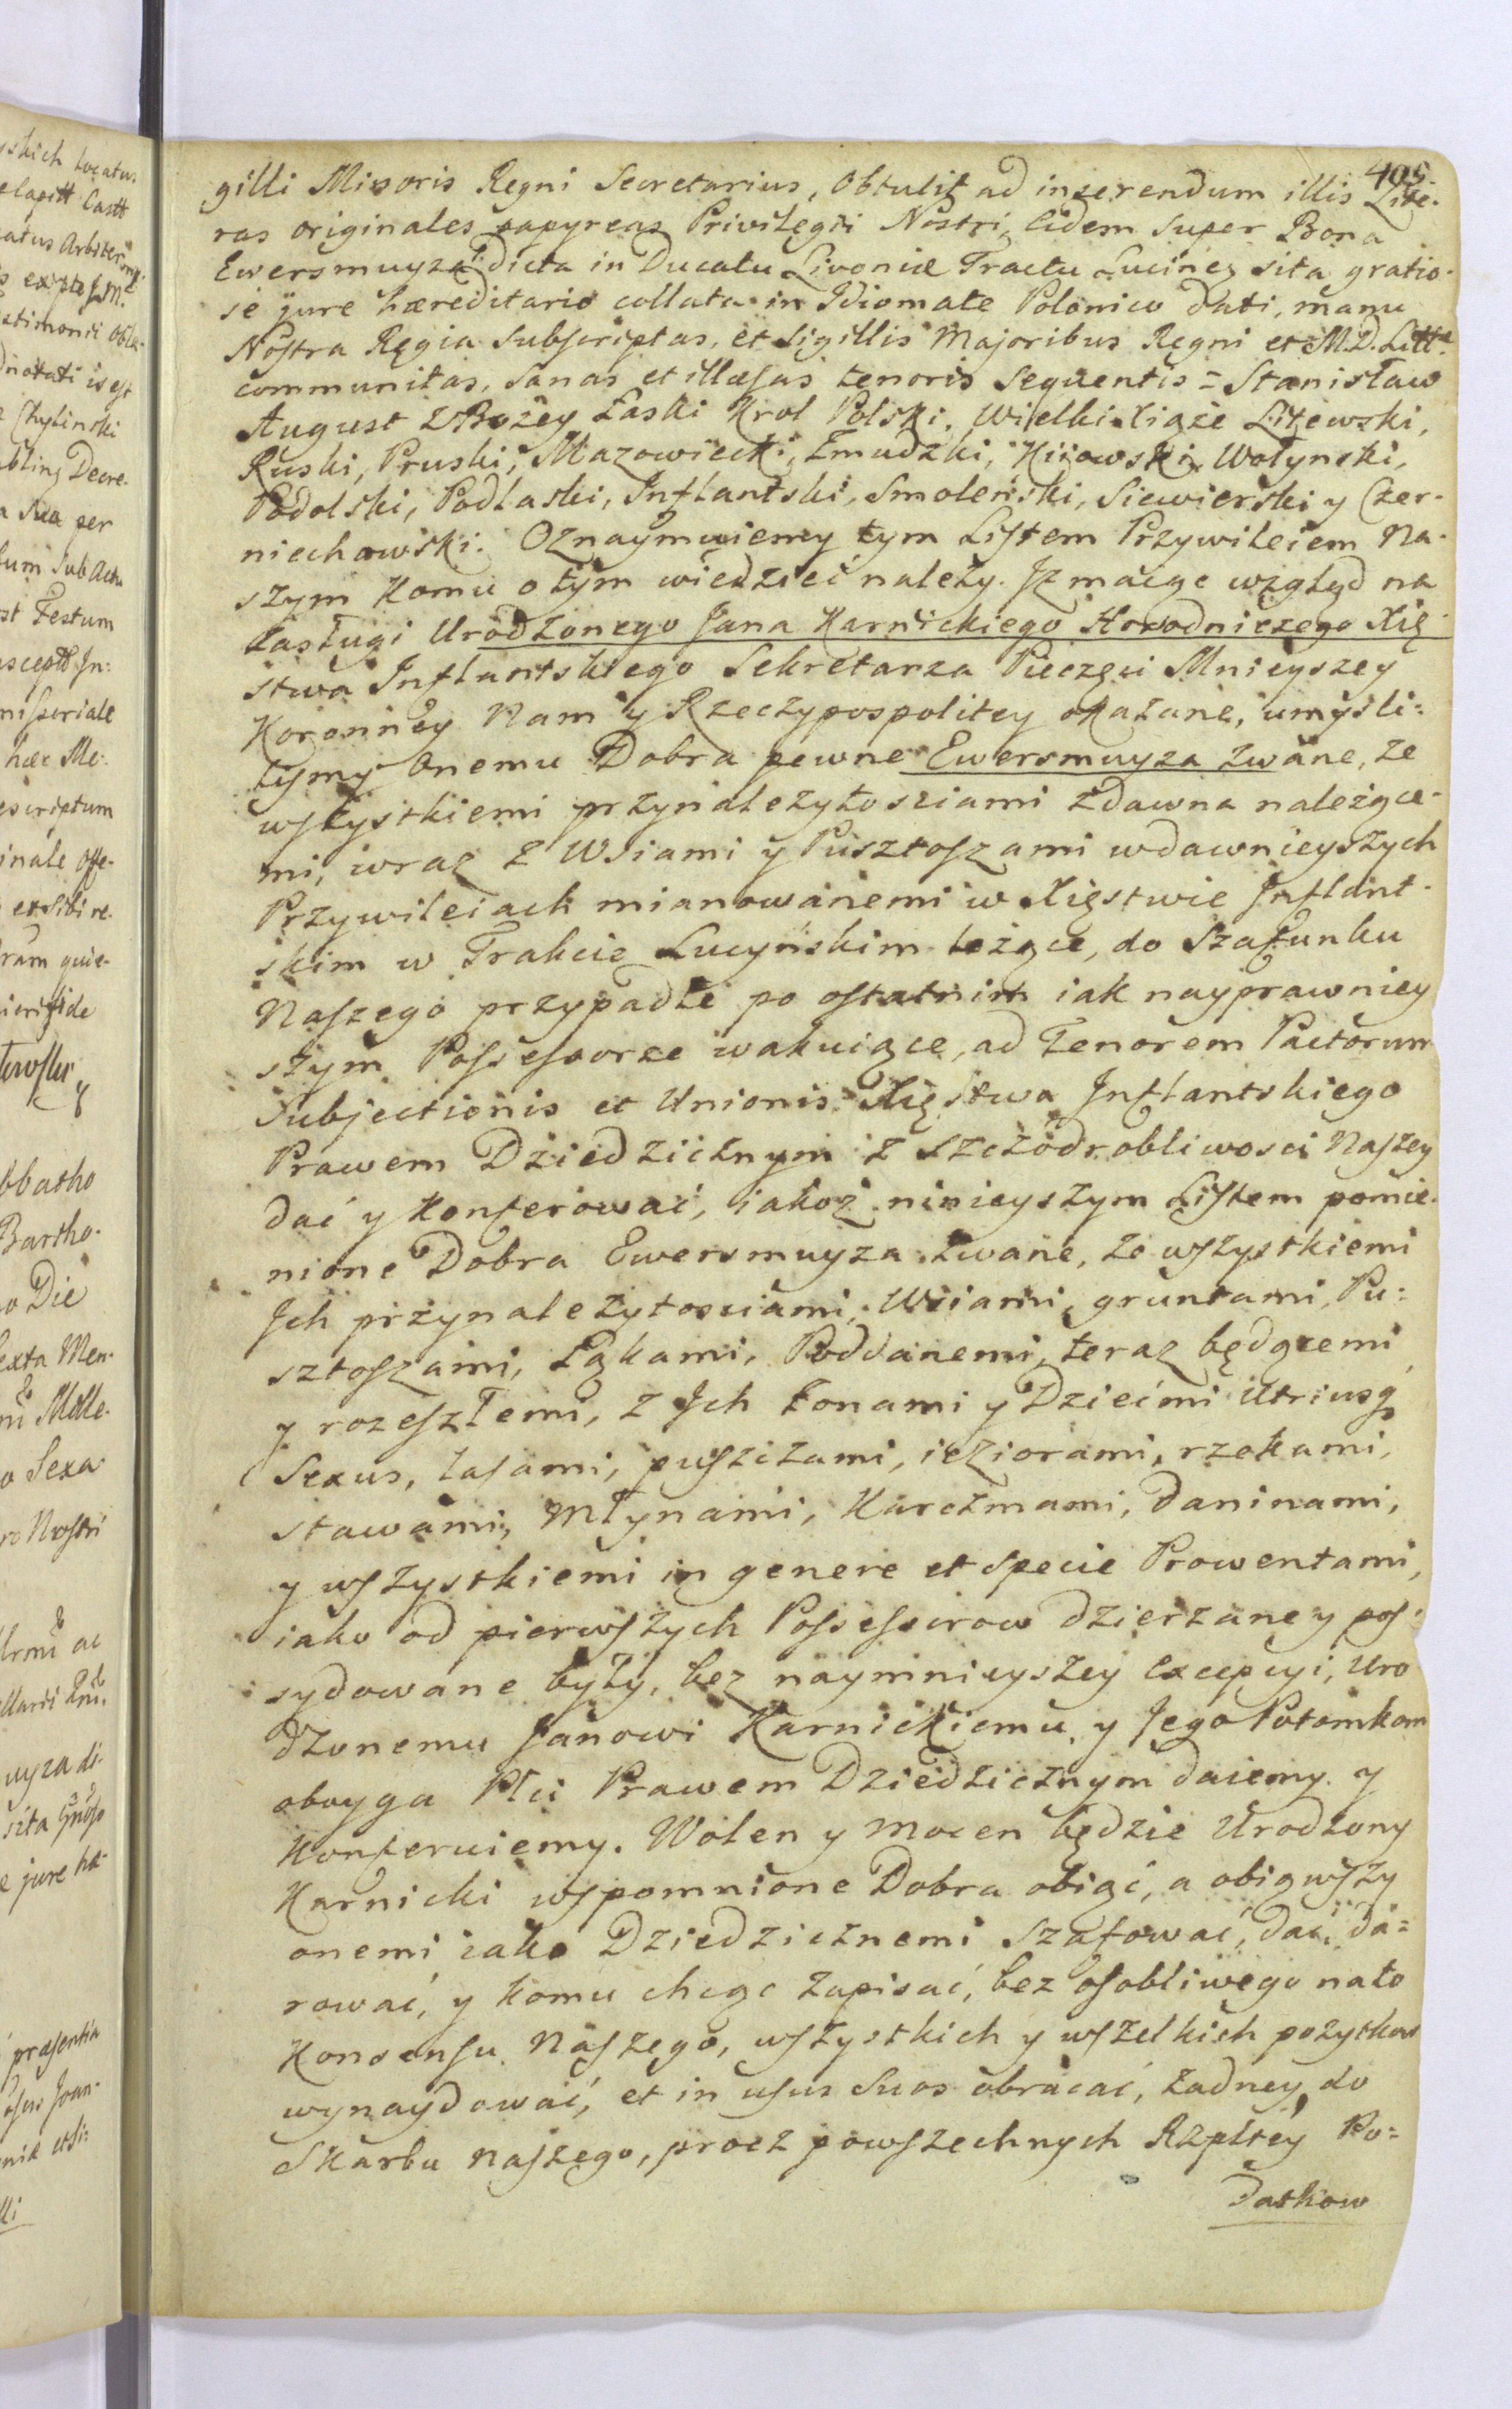 405
gilli Minoris Regni Secretarius, Obtulit ad inserendum illis Lite-
ras originales papyreas Privilegii Nostri, eidem super Bona
Ewersmuyza dicta in Ducatu Livoniæ Tractu Lucinen sita gratio-
se jure hæreditario collata in Idiomate Polonico dati, manu
Nostra Regia subscriptas, et Sigillis Majoribus Regni et M. D. Litt.
communitas, sanas et illæsas tenoris sequentis = Stanisław
August z Bożey Łaski Krol Polski, Wielki Xiąże Litewski,
Ruski, Pruski, Mazowiecki, Zmudzki, Kiiowski, Wołynski,
Podolski, Podlaski, Inflantski, Smoleński, Siewierski y Czer-
niechowski. Oznaymuiemy tym Listem Przywileiem Na-
szym Komu o tym wiedzieć należy. Iz maiąc wzgląd na
zasługi Urodzonego Jana Karnickiego Horodniczego Xię-
stwa Inflantskiego Sekretarza Pieczęci Mnieyszey
Koronney Nam y Rzeczypospolitey okazane, umysli-
lismy onemu Dobra pewne Ewersmuyza zwane, ze
wszystkiemi przynalezytosciami zdawna należące-
mi, wraz z Wsiami y Pusztoszami w dawnieyszych
Przywileiach mianowanemi w Xięstwie Inflant-
skim w Trakcie Lucyńskim leżące, do Szafunku
Naszego przypadłe po ostatnim iak nayprawniey
szym Possessorze wakuiące, ad Tenorem Pactorum
Subjectionis et Unionis Xięstwa Inflantskiego
Prawem Dziedzicznym z szczodrobliwosci Naszey
dać y Konferować, iakoż ninieyszym Listem pomie-
nione Dobra Ewersmuyza zwane, ze wszystkiemi
Ich przynalezytosciami, Wsiami, gruntami, Pu-
sztoszami, Łąkami, Poddanemi, teraz będącemi
y rozeszłemi, z Ich Żonami y Dziećmi Utriusq
Sexus, lasami, puszczami, ieziorami, rzekami,
stawami, Młynami, Karczmami, daninami,
y wszystkiemi in genere et specie Prowentami,
iako od pierwszych Possessorow dzierzane y pos-
sydowane były, bez naymnieyszey excepcyi, Uro
dzonemu Janowi Karnickiemu y Jego Potomkom
oboyga Płci Prawem Dziedzicznym daiemy y
Konferuiemy. Wolen y mocen będzie Urodzony
Karnicki wspomnione Dobra obiąć, a obiąwszy
onemi iako Dziedzicznemi szafować, dać, da-
rować, y komu chcąc zapisać, bez osobliwego na to
Konsensu Naszego, wszystkich y wszelkich pozytkow
wynaydować, et in usus suos obracać, żadney do
Skarbu naszego, procz powszechnych Rzpltey Po-
datkow